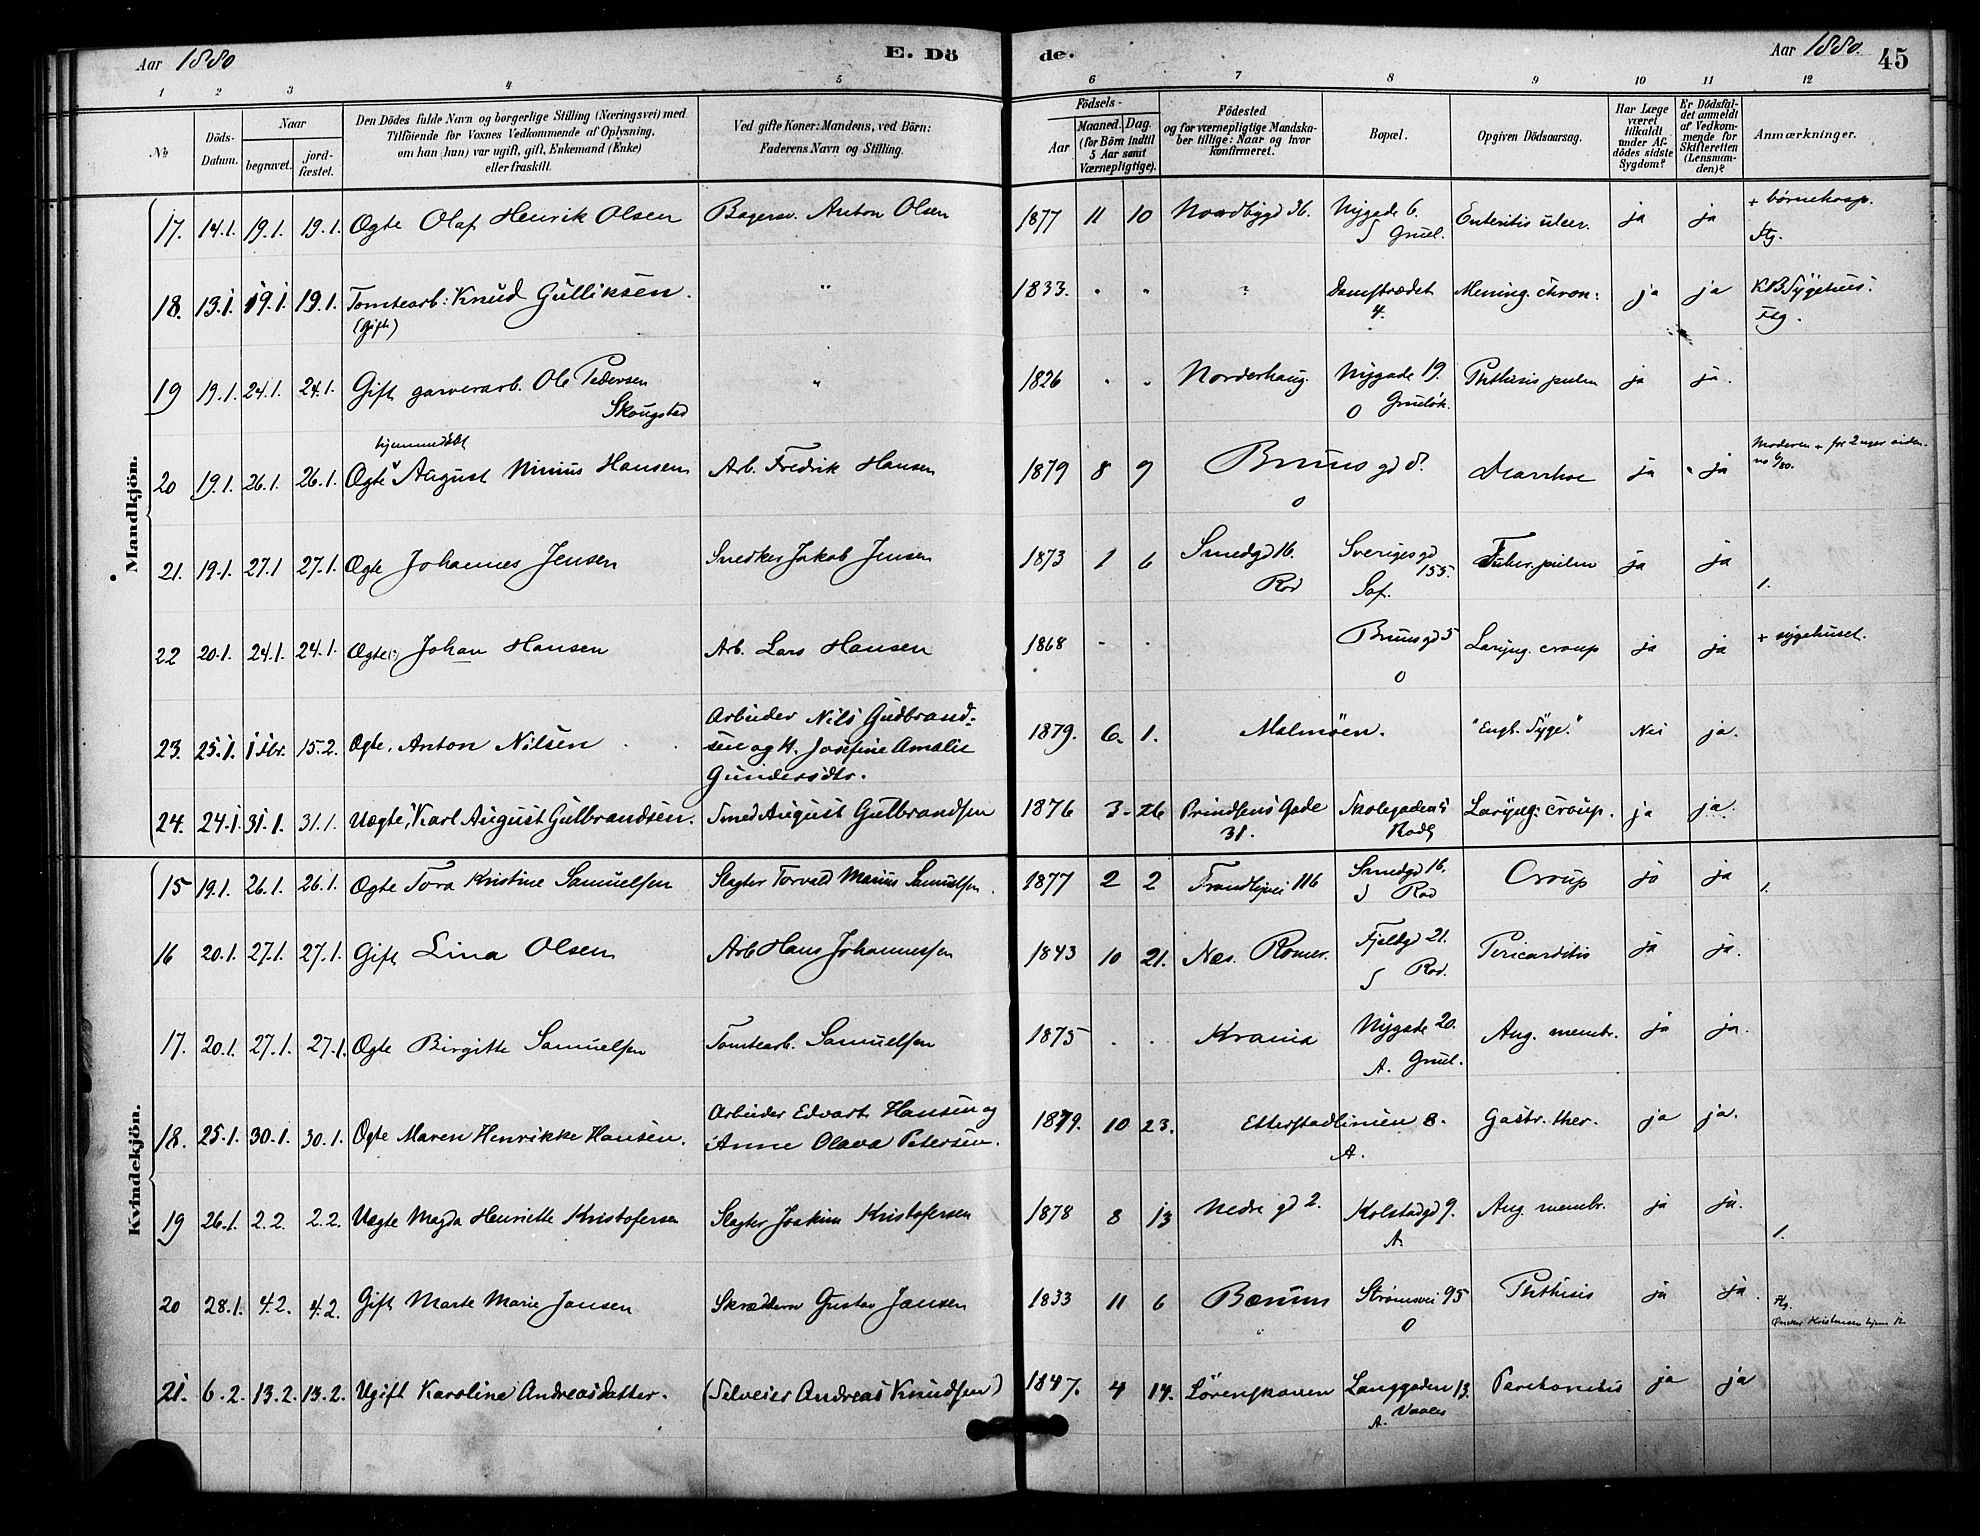 Aar 1880
E. Dö
de.
Aar 1880.
45
1 2 3 4 5 6 7 8 9 10 11 12
No
Döds-Datum.
Naar
begravet.
jordfæstet.
Den Dödes fulde Navn og borgerlige Stilling (Næringsvei) med
Tilföiende for Voxnes Vedkommende af Oplysning,
om han (hun) var ugift, gift, Enkemand (Enke)
eller fraskilt.
Ved gifte Koner: Mandens, ved Börn:
Faderens Navn og Stilling.
Födsels-
Aar
Maaned. Dag.
(for Börn indtil
5 Aar samt
Værnepligtige).
Födested
og for værnepligtige Mandska-
ber tillige: Naar og hvor
konfirmeret.
Bopæl.
Opgiven Dödsaarsag.
Har Læge
været
tilkaldt
under Af-
dödes sidste
Sygdom?
Er Dödsfal-
det anmeldt
af Vedkom-
mende for
Skifteretten
(Lensman-
den)?
Anmærkninger.
Mandkjön.
17. 14.1. 19.1. 19.1. Ægte Olaf Henrik Olsen Bagersv. Anton Olsen 1877 11 10 Nordbygd 36. Nygade 6. Enteritis ulcer. ja ja + børnehosp.
Grønl.
18. 13.1. 19.1. 19.1. Tomtearb: Knud Gulliksen. " 1833. " " ? Damstrædet Mening. chron: ja ja KBSygehus.
(gift) 4.
19 19.1. 24.1. 24.1. Gift garverarb. Ole Pedersen " 1826 " " Norderhaug. Nygade 19. Phthisis pulm ja ja.
Skougstad O
hjemmedøbt
20 19.1. 26.1. 26.1. Ægte August Minius Hansen Arb. Fredrik Hansen 1879 8 9 Brunsgd 8. Diarrhoe ja ja Moderen + for 2 uger siden.
O
21. 19.1. 27.1 27.1. Ægte Johannes Jensen Snedker Jakob Jensen 1873 1 6 Smedgd 16. Sverigesgd Tuber. pulm ja ja
Rod 155. 1.
22 20.1. 24.1. 24.1. Ægte(?) Johan Hansen Arb. Lars Hansen 1868 - - Brunsgd 5 Laryng. croup ja ja + sygehuset.
O
Arbeider Nils Gudbrand-
23. 25.1. 15.2. Ægte, Anton Nilsen sen og H. Josefine Amalie 1879. 6. 1. Malmöen. "Engl. Syge." Nei ja.
Gundersdtr.
24. 24.1. 31.1. 31.1. Uægte, Karl August Gulbrandsen. Smed August Gulbrandsen 1876 3- 26 Prindsens Gade Skolegaden 5 Laryng: croup. ja ja.
31.
Kvindekjön.
15 19.1. 26.1. 26.1. Ægte Tora Kristine Samuelsen Slagter Torvald Marius Samuelsen. 1877 2 2 116 Smedgd 16. Croup ja ja 1.
Rod
16 20.1. 27.1. 27.1. Gift Lina Olsen Arb Hans Johannessen 1843 10 21. Næs. Romer. Fjeldgd 21. Pericarditis ja ja.
Rod.
17. 20.1. 27.1. 27.1. Ægte Birgitte Samuelsen Tomtearb. Samuelsen 1875 . . Krania Nygade 20. Ang. membr. ja ja.
A. Grønl.
Arbeider Edvart Hansen og
18. 25.1. 30.1. 30.1. Ægte Maren Henrikke Hansen. Anne Olava Petersen. 1879. 10 23. Etterstadlinien 8. Gastr. ther. ja ja.
A.
19 26.1. 2.2. 2.2. Uægte Magda Henriette Kristofersen Slagter Joakim Kristofersen 1878 8 13 Nedre gd 2. Kolstadgd 9. Ang. membr. ja ja.
A. 1.
20 28.1. 4.2. 4.2. Gift Marte Marie Jansen Skrædderm Gustav Jansen 1833 11 6 Bærum Strömsvei 95 Phthisis ja ja.
O
21. 6.2. 13.2. 13.2. Ugift Karoline Andreasdatter. (Selveier Andreas Knudsen) 1847. 4 14. Lörenskouen Langgaden 13. Peritonitis ja ja
A. Vaaler